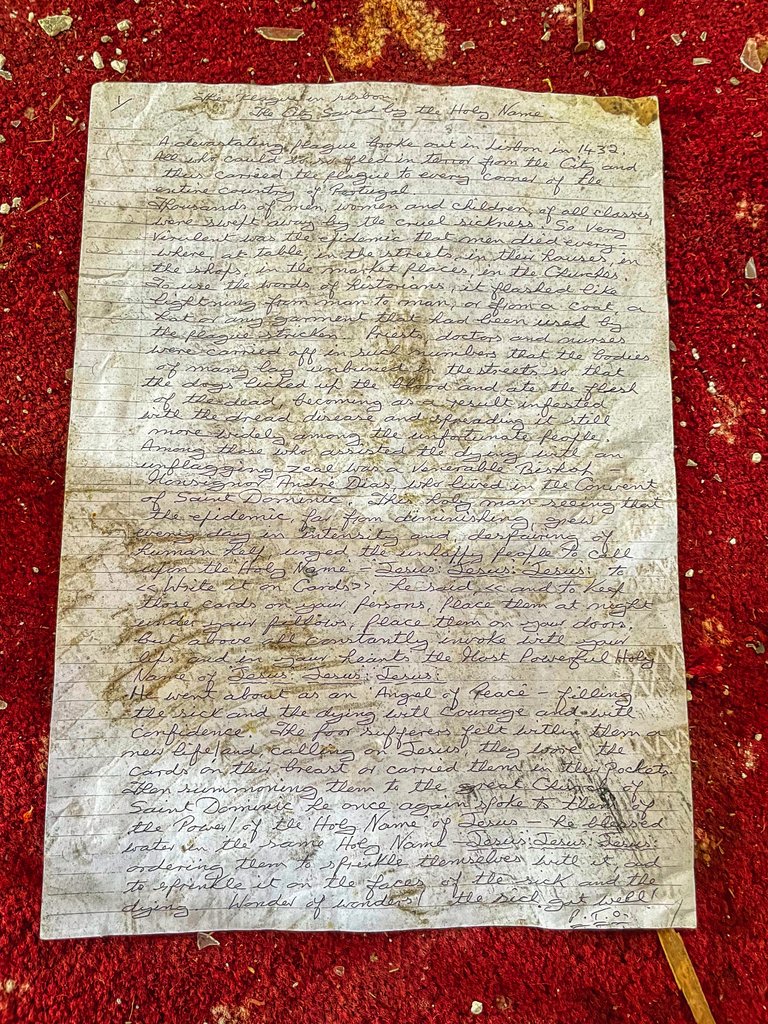 1/ The Plague in Lisbon
The City Saved by the Holy Name.
A devastating plague broke out in Lisbon in 1432.
All who could do so fled in terror from the City and
thus carried the plague to every corner of the
entire country of Portugal
Thousands of men, women and children, of all classes,
were swept away by the cruel sickness. So very
virulent was the epidemic that men died every-
where, at table, in the streets, in their houses, in
the shops, in the market places, in the Churches
To use the words of historians, it flashed like
lightning from man to man, or from a coat, a
hat or any garment that had been used by
the plague-stricken. Priests, doctors and nurses
were carried off in such numbers that the bodies
of many lay unburied in the streets so that
the dogs licked up the blood and ate the flesh
of the dead, becoming as a result infested
with the dread disease and spreading it still
more widely among the unfortunate people.
Among those who assisted the dying with an
unflagging zeal was a venerable Bishop -
Monsignor André Dias, who lived in the Convent
of Saint Dominic. This holy man seeing that
the epidemic, far from diminishing, grew
every day in intensity and despairing of
human help urged the unhappy people to call
upon the Holy Name - Jesus: Jesus: Jesus: to
<< Write it on Cards>>, he said, << and to keep
those cards on your persons. Place them at night
under your pillows. Place them on your doors.
but above all constantly invoke with your
lips and in your hearts the Most Powerful Holy
Name of Jesus: Jesus: Jesus:
He went about as an Angel of Peace - filling
the sick and the dying with courage and with
confidence. The poor sufferers felt within them a
new life, and calling on Jesus they wore the
cards on their breast or carried them in their Pockets.
Then summoning them to the great Church of
Saint Dominic he once again spoke to them of
the Power of the Holy Name of Jesus - he blessed
water in the same Holy Name Jesus: Jesus: Jesus:
ordering them to sprinkle themselves with it and
to sprinkle it on the faces of the sick and the
dying. Wonder of wonders! the sick got well!
P.T.O.